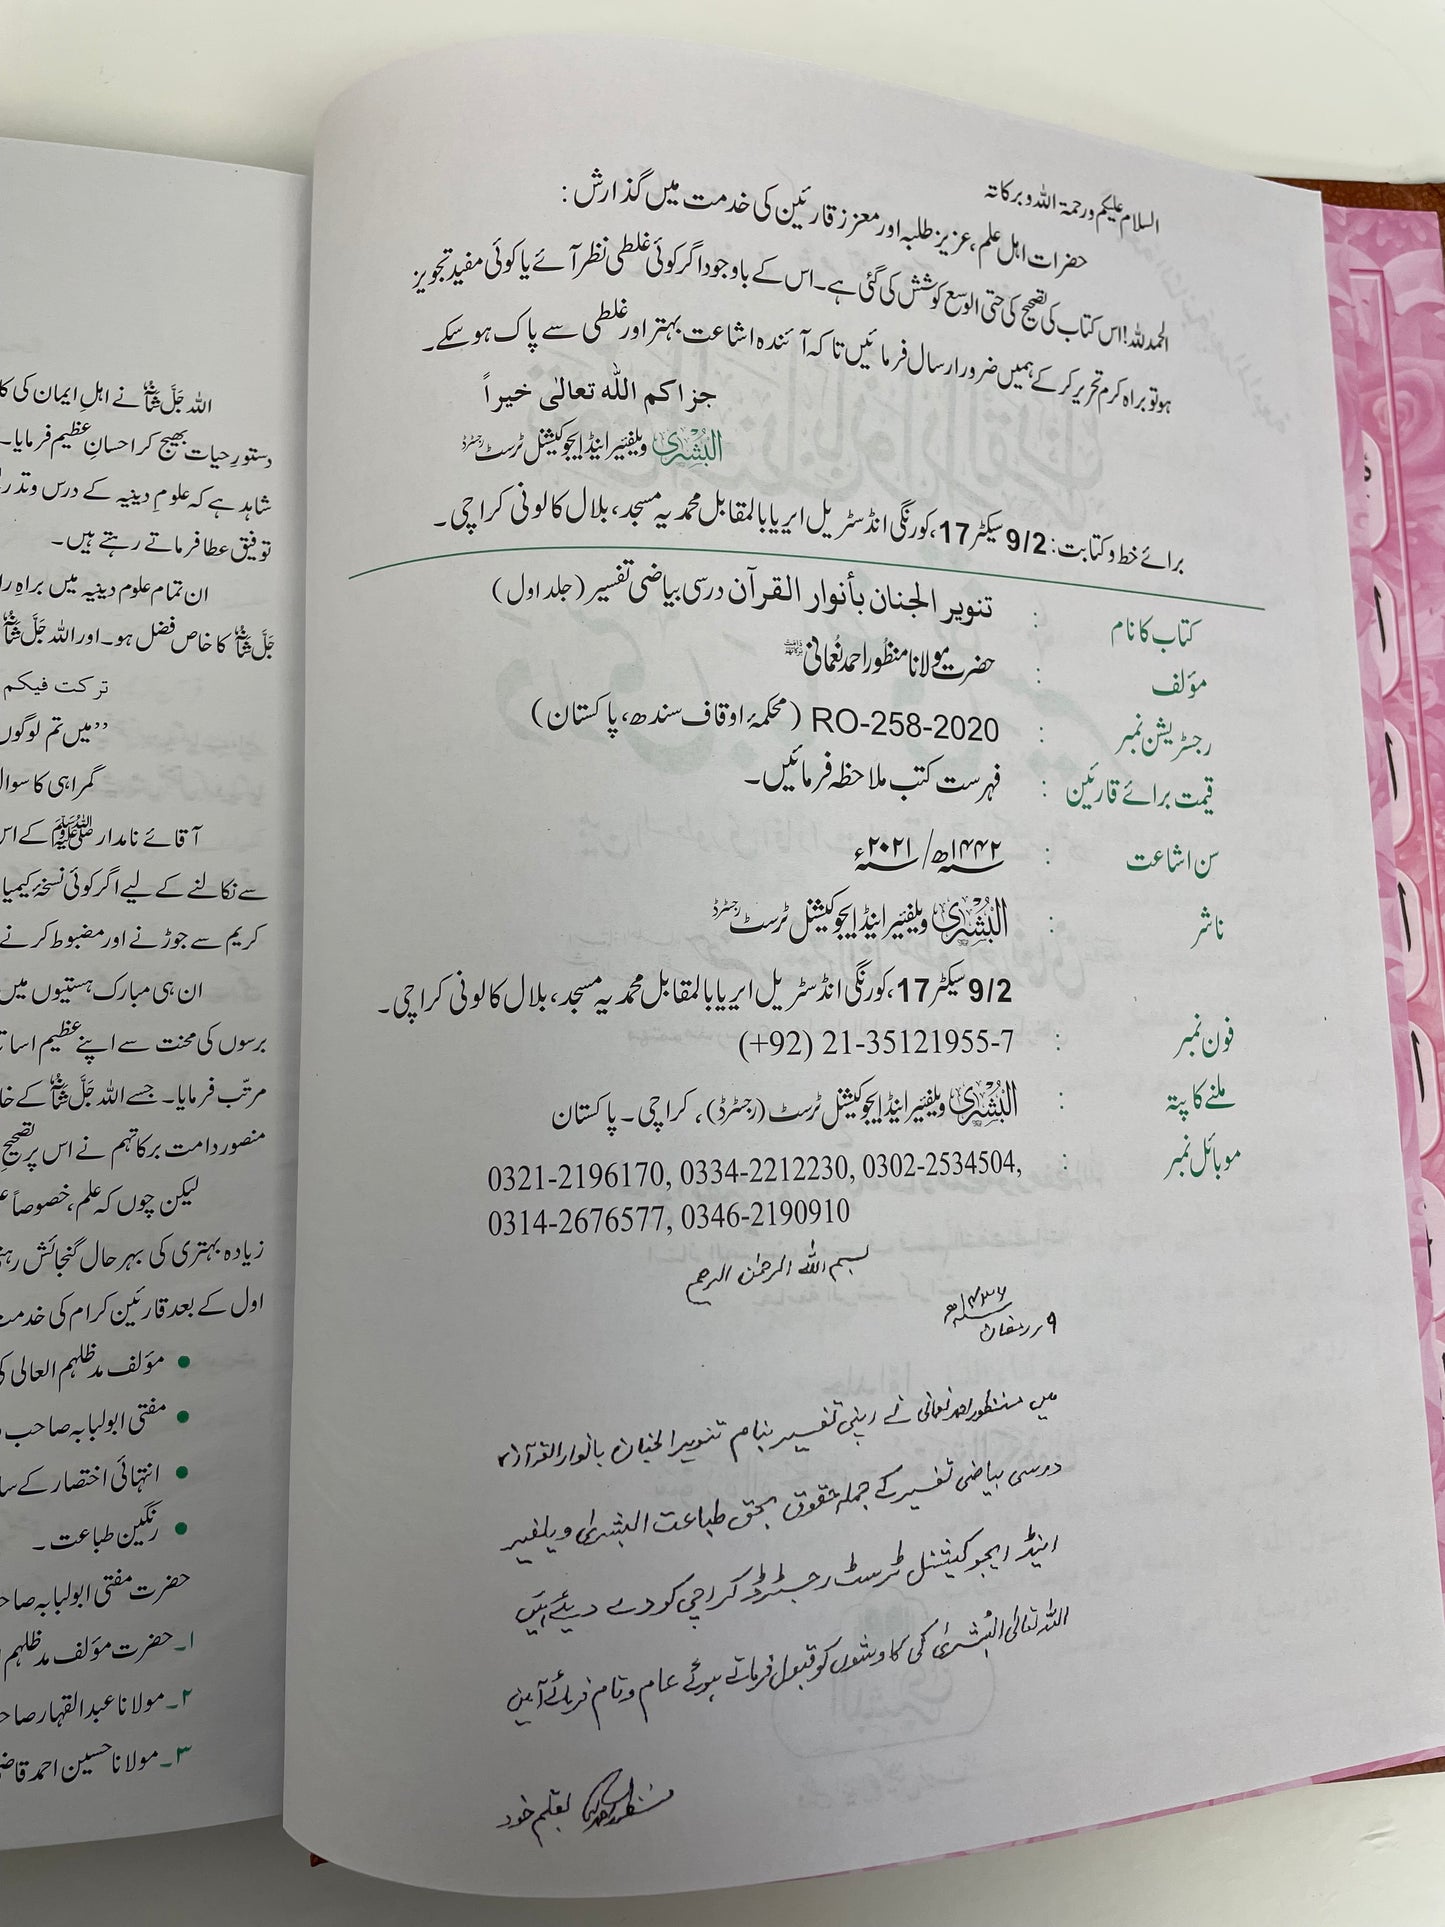 السلام علیکم ورحمۃ اللہ وبرکاتہ
حضرات اہل علم، عزیز طلبہ اور معزز قارئین کی خدمت میں گذارش:
الحمد للہ! اس کتاب کی تصحیح کی حتی الوسع کوشش کی گئی ہے۔ اس کے باوجود اگر کوئی غلطی نظر آئے یا کوئی مفید تجویز
ہو تو براہ کرم تحریر کر کے ہمیں ضرور ارسال فرمائیں تاکہ آئندہ اشاعت بہتر اور غلطی سے پاک ہو سکے۔
جزاکم اللہ تعالیٰ خیراً
البُشریٰ ویلفیئر اینڈ ایجوکیشنل ٹرسٹ رجسٹرڈ
برائے خط و کتابت: 9/2 سیکٹر 17، کورنگی انڈسٹریل ایریا بالمقابل محمدیہ مسجد، بلال کالونی کراچی۔
کتاب کا نام : تنویر الجنان بأنوار القرآن درسی بیاضی تفسیر (جلد اول)
مؤلف : حضرت مولانا منظور احمد نُعمانی دَامَتْ بَرَكَاتُهُمْ
رجسٹریشن نمبر : RO-258-2020 (محکمۂ اوقاف سندھ، پاکستان)
قیمت برائے قارئین : فہرست کتب ملاحظہ فرمائیں۔
سن اشاعت : ۱۴۴۲ھ/ ۲۰۲۱ء
ناشر : البُشریٰ ویلفیئر اینڈ ایجوکیشنل ٹرسٹ رجسٹرڈ
9/2 سیکٹر 17، کورنگی انڈسٹریل ایریا بالمقابل محمدیہ مسجد، بلال کالونی کراچی۔
فون نمبر : (+92) 21-35121955-7
ملنے کا پتہ : البُشریٰ ویلفیئر اینڈ ایجوکیشنل ٹرسٹ (رجسٹرڈ)، کراچی۔ پاکستان
موبائل نمبر : 0321-2196170, 0334-2212230, 0302-2534504,
0314-2676577, 0346-2190910
بسم اللہ الرحمٰن الرحیم
۹ رمضان ۱۴۳۶ھ
میں منظور احمد نعمانی نے اپنی تفسیر بنام تنویر الجنان بانوار القرآن
درسی بیاضی تفسیر کے جملہ حقوق بحق طباعت البشریٰ ویلفیر
اینڈ ایجوکیشنل ٹرسٹ رجسٹرڈ کراچی کو دے دیئے ہیں
اللہ تعالیٰ البُشریٰ کی کاوشوں کو قبول فرماتے ہوئے عام و تام فرمائے آمین
منظور احمد بقلم خود
اللہ جَلَّ شَانُہٗ نے اہلِ ایمان کی
دستورِ حیات بھیج کر احسانِ عظیم فرمایا۔
شاہد ہے کہ علومِ دینیہ کے درس و
توفیق عطا فرماتے رہتے ہیں۔
ان تمام علوم دینیہ میں براہِ
جَلَّ شَانُہٗ کا خاص فضل ہو۔ اور اللہ جَلَّ شَانُہٗ
ترکت فیکم
”میں تم لوگوں
گمراہی کا سوال
آقائے نامدار ﷺ کے
سے نکالنے کے لیے اگر کوئی نسخۂ کیمیا
کریم سے جوڑنے اور مضبوط کرنے
ان ہی مبارک ہستیوں میں
برسوں کی محنت سے اپنے عظیم
مرتّب فرمایا۔ جسے اللہ جَلَّ شَانُہٗ کے
منصور دامت برکاتہم نے اس پر تصحیح
لیکن چوں کہ علم، خصوصاً
زیادہ بہتری کی بہر حال گنجائش
اول کے بعد قارئین کرام کی خدمت
• مؤلف مدظلہم العالی
• مفتی ابولبابہ صاحب
• انتہائی اختصار کے
• رنگین طباعت۔
حضرت مفتی ابولبابہ
۱۔ حضرت مؤلف مدظلہم
۲۔ مولانا عبدالقہار
۳۔ مولانا حسین احمد